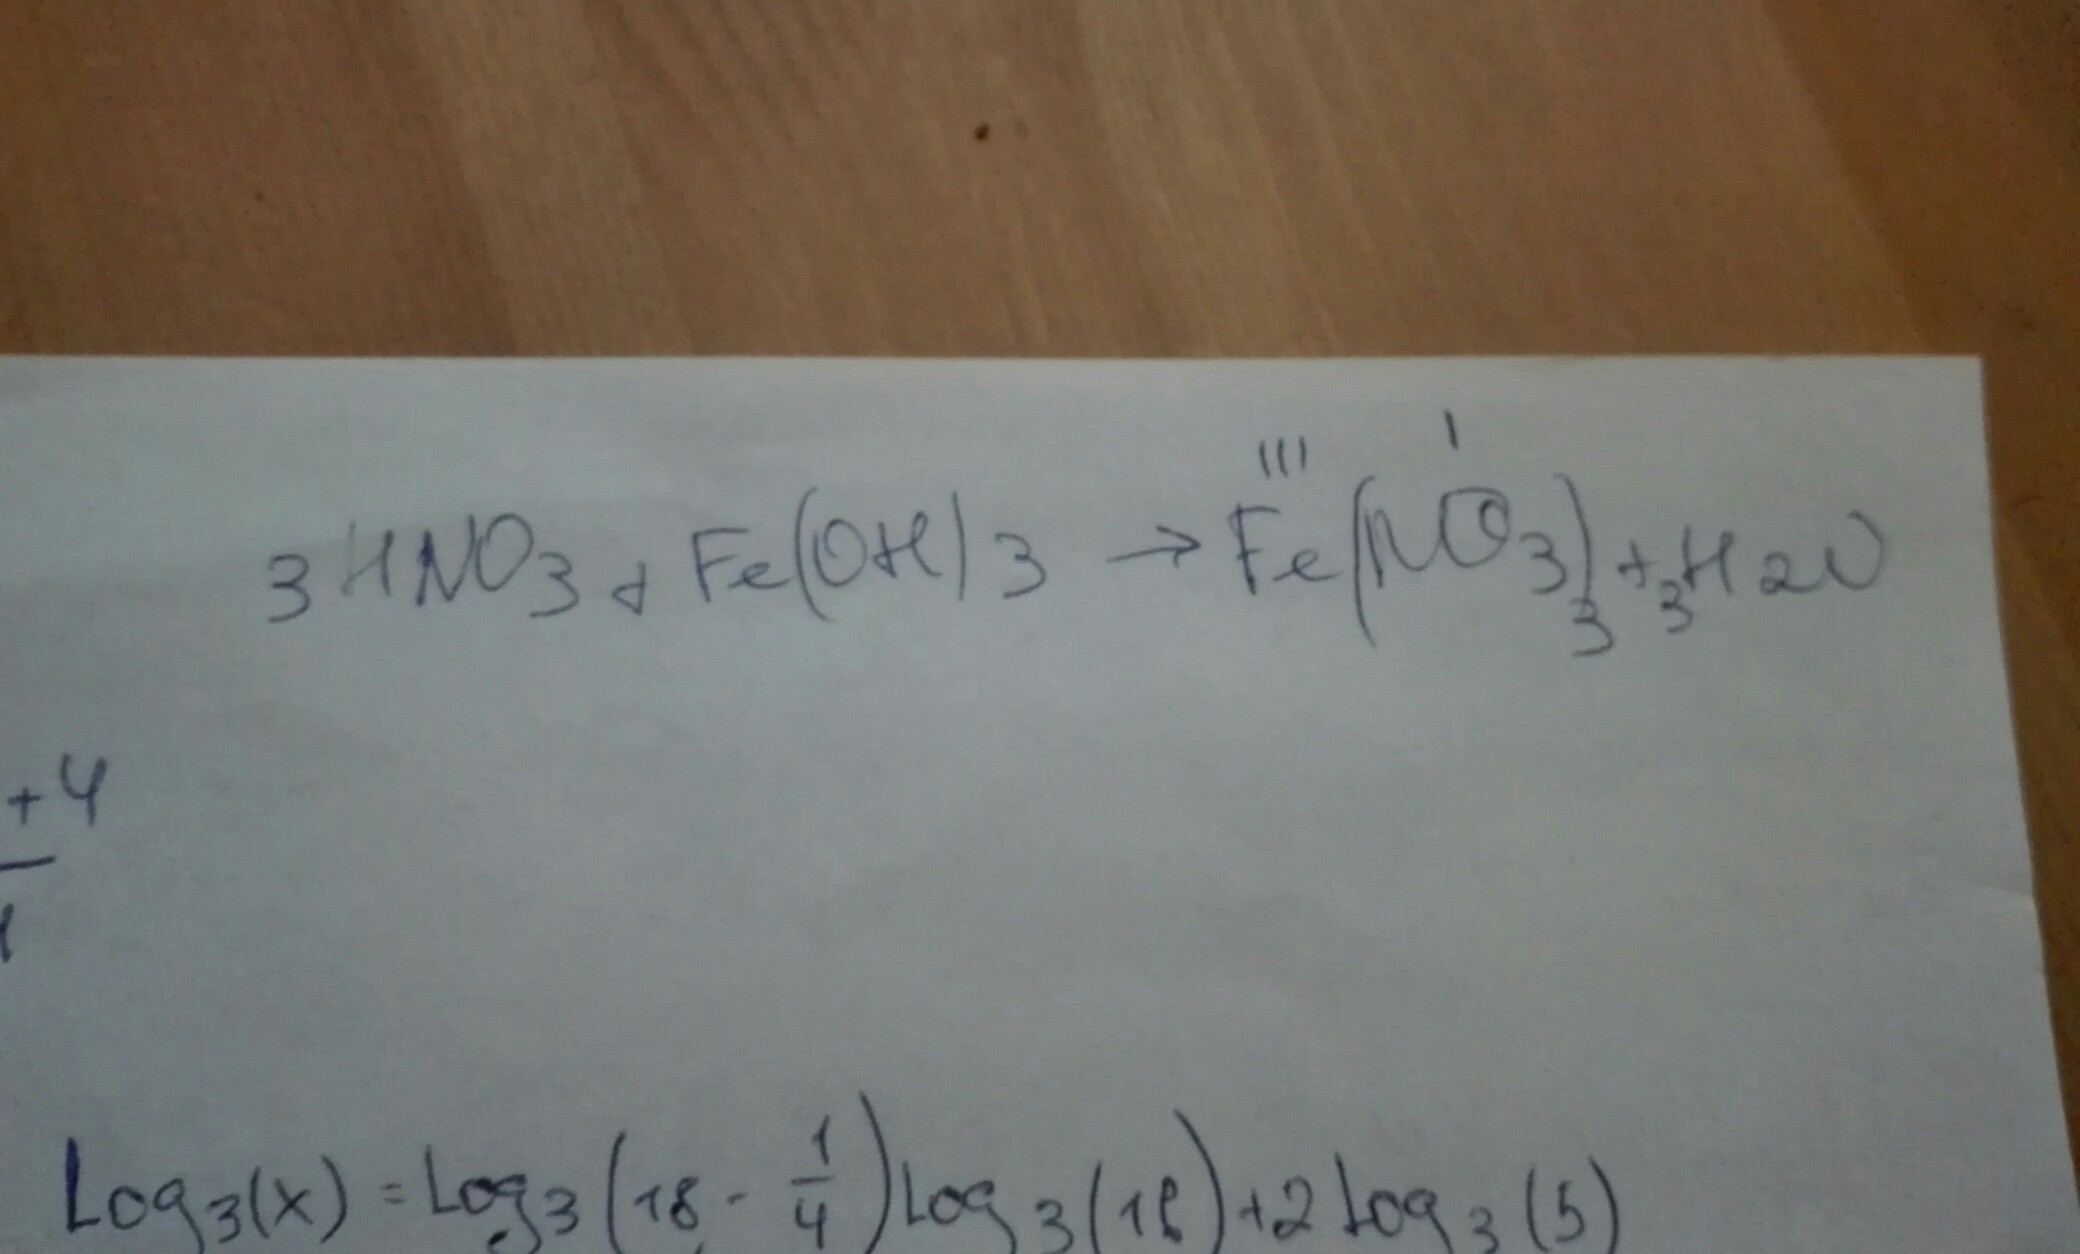 III I
3HNO3 + Fe(OH)3 → Fe(NO3)3 + 3H2O
+4
1
Log3(x) = Log3(18 - 1/4) Log3(18) + 2 Log3(5)